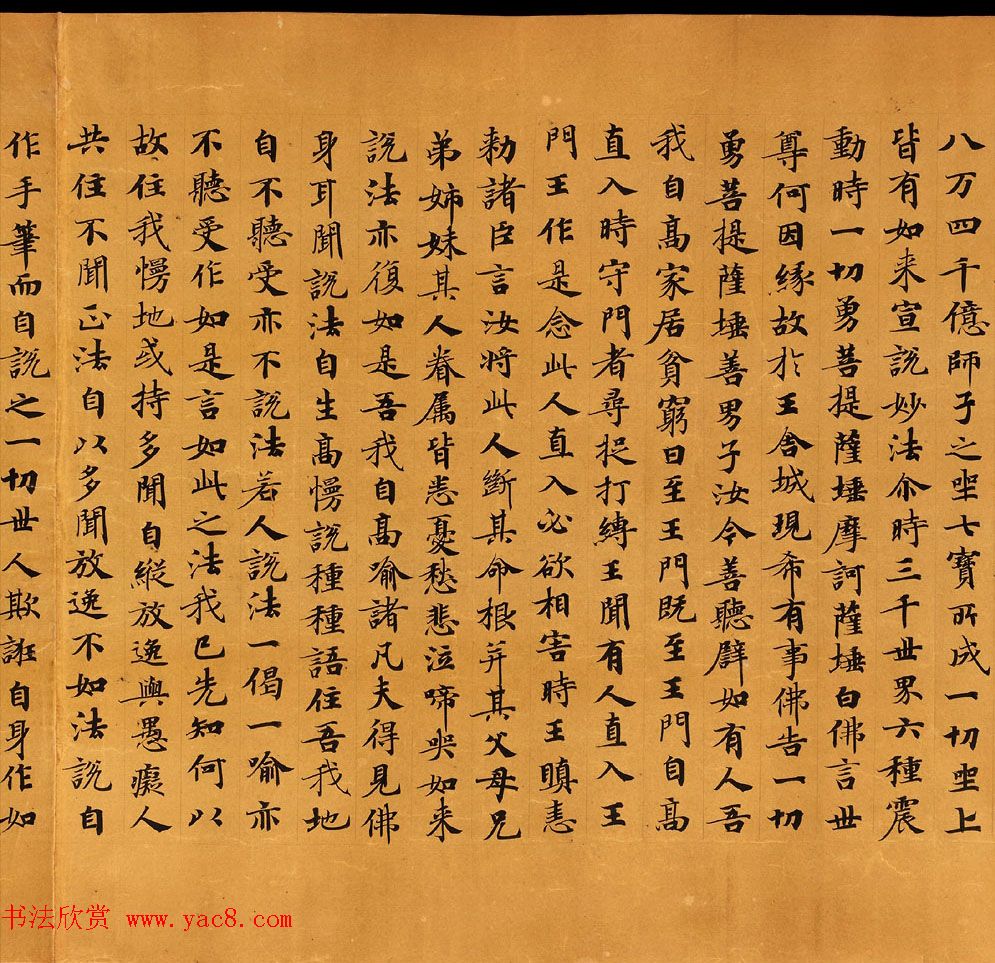 八万四千億師子之㘴七寶所成一切㘴上
皆有如来宣說妙法尒時三千世界六種震
動時一切勇菩提薩埵摩訶薩埵白佛言世
尊何因緣故於王舍城現希有事佛告一切
勇菩提薩埵善男子汝今善聽辟如有人吾
我自高家居貧窮日至王門既至王門自高
直入時守門者尋捉打縛王聞有人直入王
門王作是念此人直入必欲相害時王瞋恚
勑諸臣言汝將此人斷其命根并其父母兄
弟姉妹其人眷属皆悉憂愁悲泣啼哭如来
說法亦復如是吾我自高喻諸凡夫得見佛
身耳聞說法自生高慢說種種語住吾我地
自不聽受亦不說法若人說法一偈一喻亦
不聽受作如是言如此之法我已先知何以
故住我慢地或持多聞自縱放逸與愚癡人
共住不聞正法自以多聞放逸不如法說自
作手筆而自說之一切世人欺誑自身作如
书法欣赏 www.yac8.com